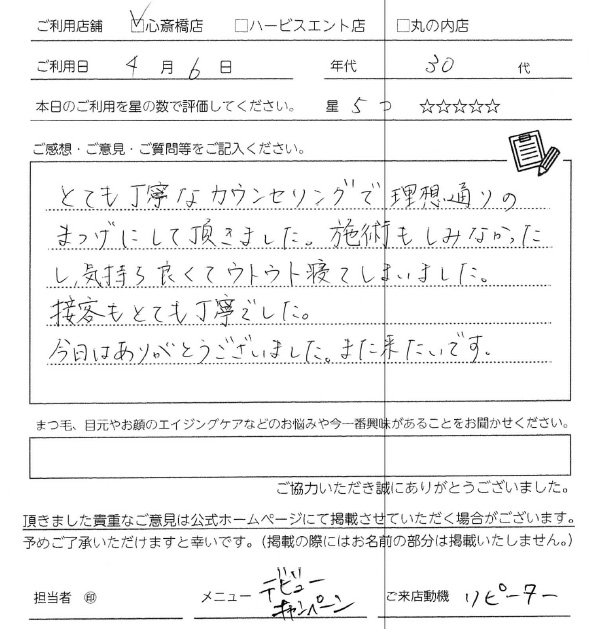 ご利用店舗 ☑心斎橋店 □ハービスエント店 □丸の内店
ご利用日 4月6日 年代 30代
本日のご利用を星の数で評価してください。 星5つ ☆☆☆☆☆
ご感想・ご意見・ご質問等をご記入ください。
とても丁寧なカウンセリングで理想通りの
まつげにして頂きました。施術もしみなかった
し、気持ち良くてウトウト寝てしまいました。
接客もとても丁寧でした。
今日はありがとうございました。また来たいです。
まつ毛、目元やお顔のエイジングケアなどのお悩みや今一番興味があることをお聞かせください。
ご協力いただき誠にありがとうございました。
頂きました貴重なご意見は公式ホームページにて掲載させていただく場合がございます。
予めご了承いただけますと幸いです。（掲載の際にはお名前の部分は掲載いたしません。）
担当者 ㊞ メニュー デビューキャンペーン ご来店動機 リピーター